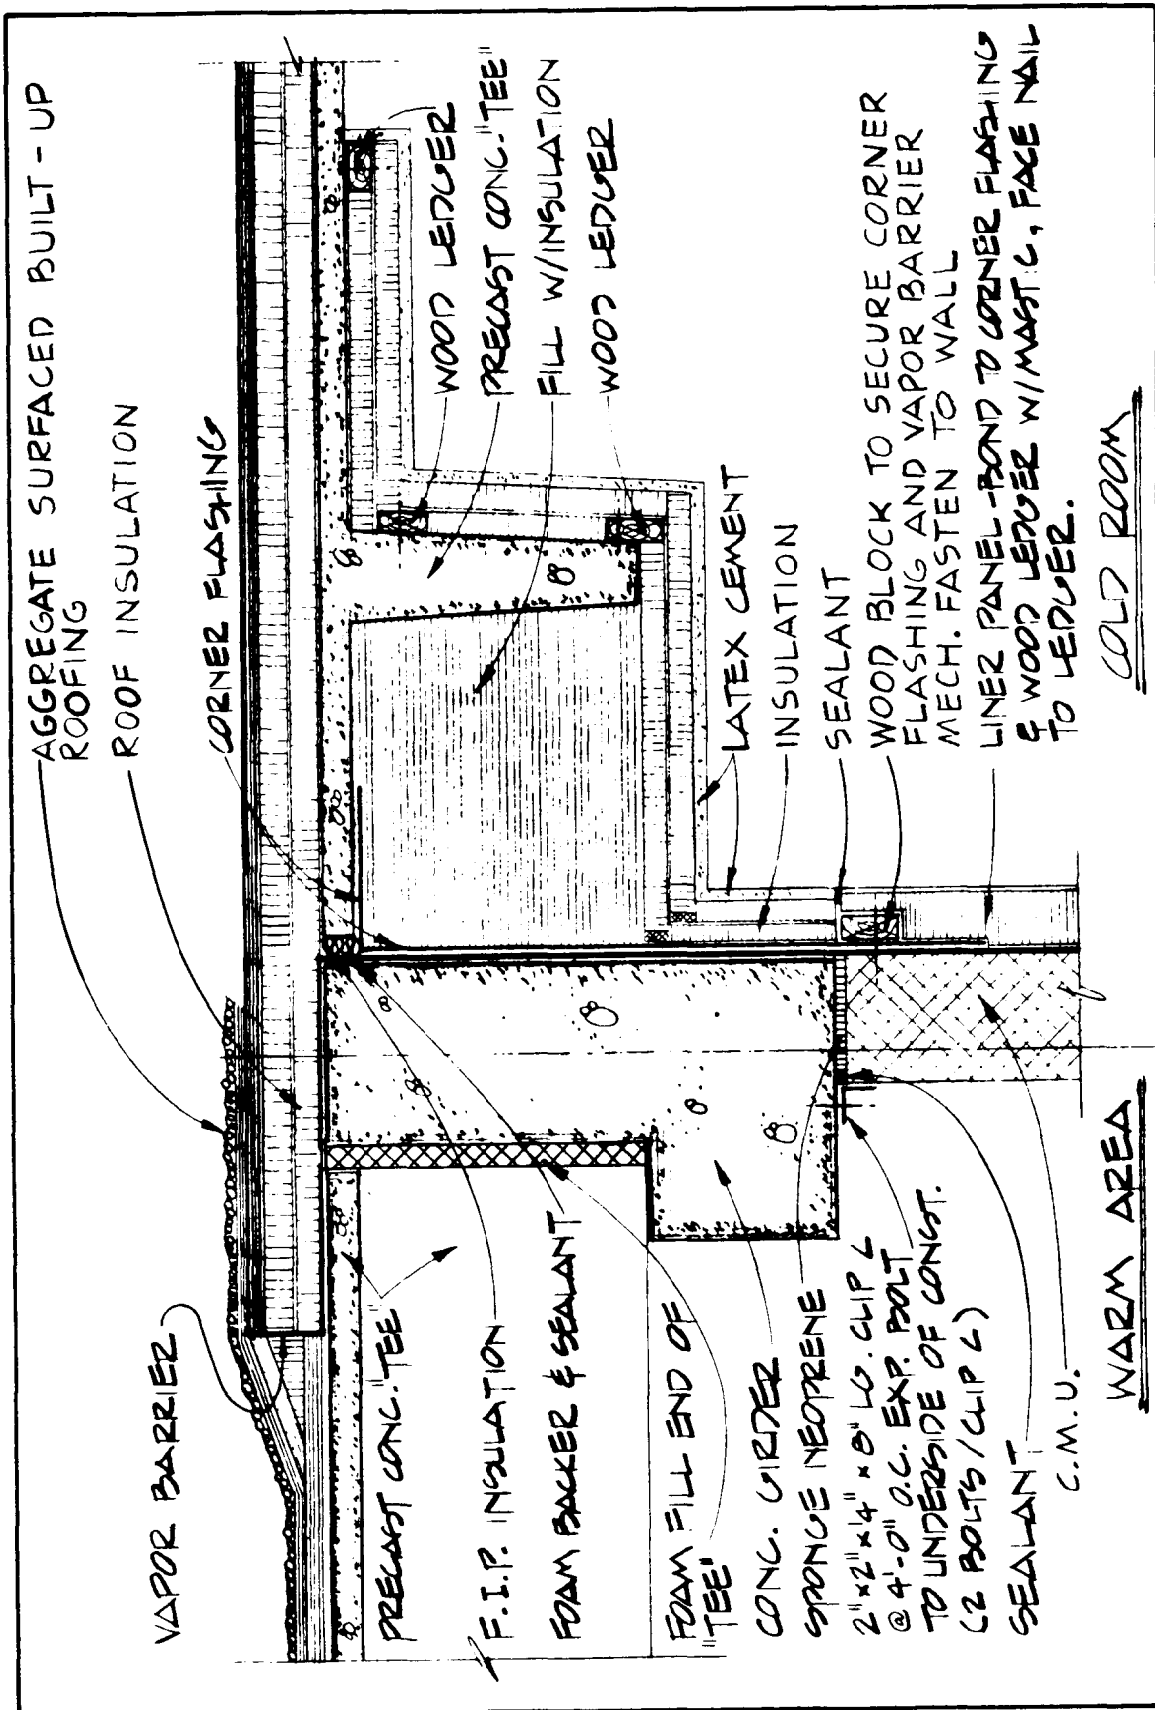 AGGREGATE SURFACED BUILT-UP
ROOFING
ROOF INSULATION
CORNER FLASHING
VAPOR BARRIER
WOOD LEDGER
PRECAST CONC. "TEE"
FILL W/INSULATION
WOOD LEDGER
LATEX CEMENT
INSULATION
SEALANT
WOOD BLOCK TO SECURE CORNER
FLASHING AND VAPOR BARRIER
MECH. FASTEN TO WALL
LINER PANEL-BOND TO CORNER FLASHING
& WOOD LEDGER W/MASTIC, FACE NAIL
TO LEDGER.
COLD ROOM
PRECAST CONC. "TEE"
F.I.P. INSULATION
FOAM BACKER & SEALANT
FOAM FILL END OF
"TEE"
CONC. GIRDER
SPONGE NEOPRENE
2"x2"x¼"x8" LG. CLIP L
@ 4'-0" O.C. EXP. BOLT
TO UNDERSIDE OF CONST.
(2 BOLTS/CLIP L)
SEALANT
C.M.U.
WARM AREA